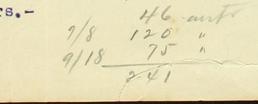 rs.-
46 units
9/8 120 "
9/18 75 "
241